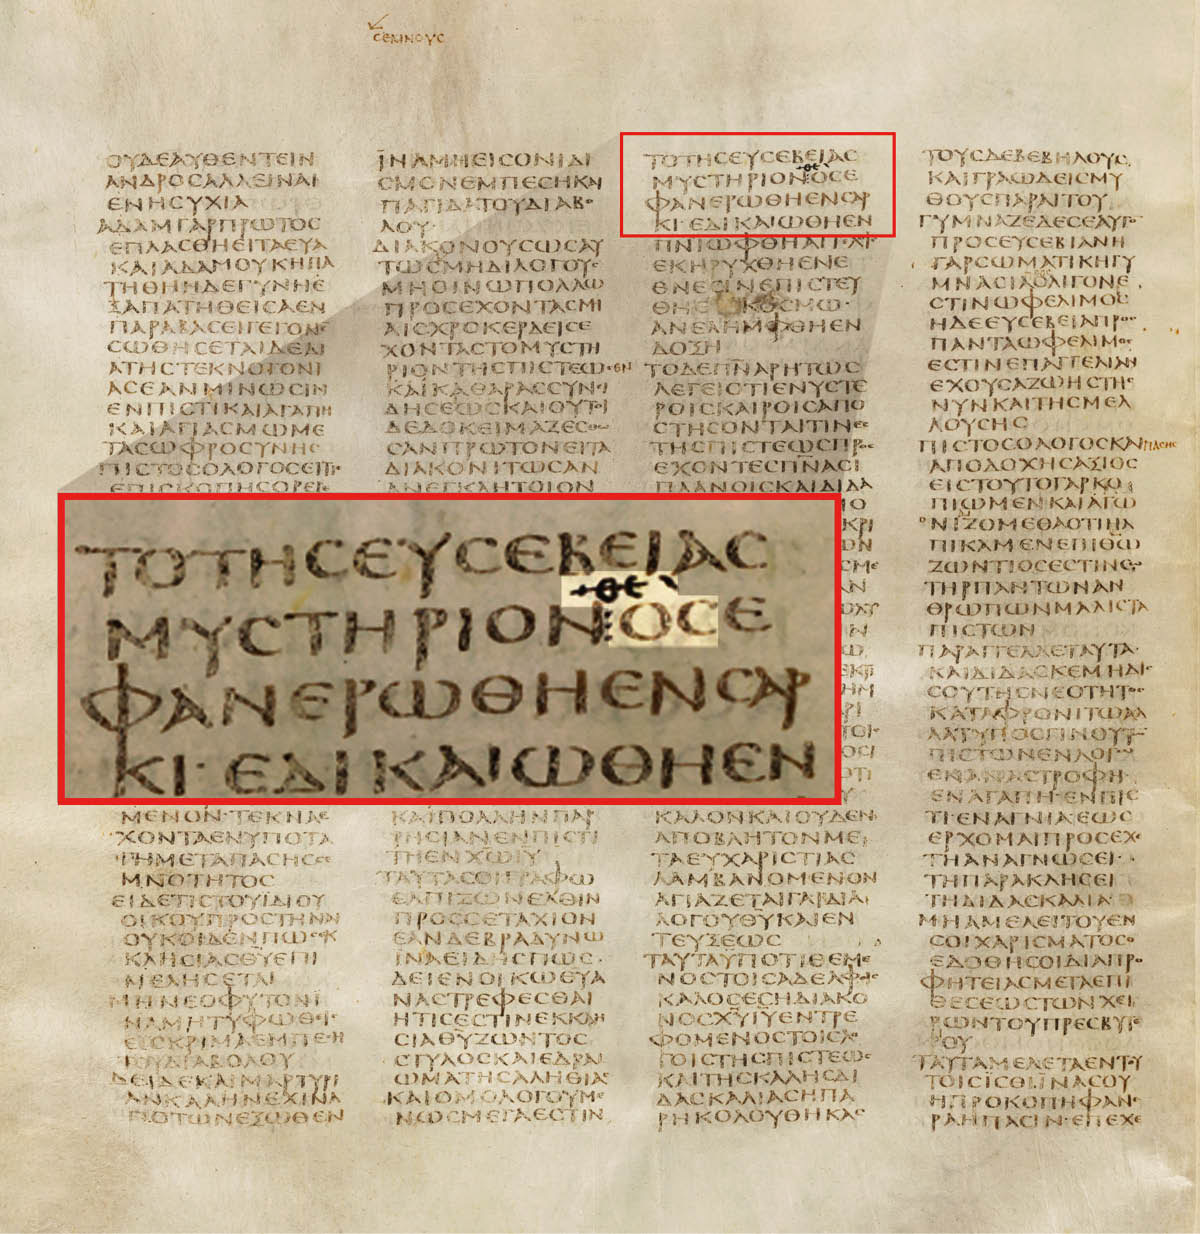 ϹΕΜΝΟΥϹ
ΟΥΔΕΑΥΘΕΝΤΕΙΝ
ΑΝΔΡΟϹΑΛΛΕΙΝΑΙ
ΕΝΗϹΥΧΙΑ
ΑΔΑΜΓΑΡΠΡΩΤΟϹ
ΕΠΛΑϹΘΗΕΙΤΑΕΥΑ
ΚΑΙΑΔΑΜΟΥΚΗΠΑ
ΤΗΘΗΗΔΕΓΥΝΗΕ
ΞΑΠΑΤΗΘΕΙϹΑΕΝ
ΠΑΡΑΒΑϹΕΙΓΕΓΟΝΕ
ϹΩΘΗϹΕΤΑΙΔΕΔΙ
ΑΤΗϹΤΕΚΝΟΓΟΝΙ
ΑϹΕΑΝΜΙΝΩϹΙΝ
ΕΝΠΙϹΤΙΚΑΙΑΓΑΠΗ
ΚΑΙΑΓΙΑϹΜΩΜΕ
ΤΑϹΩΦΡΟϹΥΝΗϹ
ΠΙϹΤΟϹΟΛΟΓΟϹΕΙΤΙϹ
ΕΠΙϹΚΟΠΗϹΟΡΕΓΕ
ΜΕΝΟΝ·ΤΕΚΝΑΕ
ΧΟΝΤΑΕΝΥΠΟΤΑ
ΓΗΜΕΤΑΠΑϹΗϹϹΕ
ΜΝΟΤΗΤΟϹ
ΕΙΔΕΤΙϹΤΟΥΙΔΙΟΥ
ΟΙΚΟΥΠΡΟϹΤΗΝΑΙ
ΟΥΚΟΙΔΕΝΠΩϹΕΚ
ΚΛΗϹΙΑϹΘΥΕΠΙ
ΜΕΛΗϹΕΤΑΙ
ΜΗΝΕΟΦΥΤΟΝΙ
ΝΑΜΗΤΥΦΩΘΙϹ
ΕΙϹΚΡΙΜΑΕΜΠΕϹΗ
ΤΟΥΔΙΑΒΟΛΟΥ
ΔΕΙΔΕΚΑΙΜΑΡΤΥΡΙ
ΑΝΚΑΛΗΝΕΧΙΝΑ
ΠΟΤΩΝΕΞΩΘΕΝ
ΪΝΑΜΗΕΙϹΟΝΙΔΙ
ϹΜΟΝΕΜΠΕϹΗΚΑΙ
ΠΑΓΙΔΑΤΟΥΔΙΑΒΟ
ΛΟΥ·
ΔΙΑΚΟΝΟΥϹΩϹΑΥ
ΤΩϹΜΗΔΙΛΟΓΟΥϹ
ΜΗΟΙΝΩΠΟΛΛΩ
ΠΡΟϹΕΧΟΝΤΑϹΜΙ
ΑΙϹΧΡΟΚΕΡΔΕΙϹΕ
ΧΟΝΤΑϹΤΟΜΥϹΤΗ
ΡΙΟΝΤΗϹΠΙϹΤΕΩϹΕΝ
ΚΑΙΚΑΘΑΡΑϹΥΝΙ
ΔΗϹΕΩϹΚΑΙΟΥΤΟΙ
ΔΕΔΟΚΕΙΜΑΖΕϹΘΩ
ϹΑΝΠΡΩΤΟΝΕΙΤΑ
ΔΙΑΚΟΝΙΤΩϹΑΝ
ΑΝΕΓΚΛΗΤΟΙΟΝ
ΚΑΙΠΟΛΛΗΝΠΑΡ
ΡΗϹΙΑΝΕΝΠΙϹΤΙ
ΤΗΕΝΧΩΙΥ
ΤΑΥΤΑϹΟΙΓΡΑΦΩ
ΕΛΠΙΖΩΝΕΛΘΙΝ
ΠΡΟϹϹΕΤΑΧΙΟΝ
ΕΑΝΔΕΒΡΑΔΥΝΩ
ΙΝΑΕΙΔΗϹΠΩϹ
ΔΕΙΕΝΟΙΚΩΘΥΑ
ΝΑϹΤΡΕΦΕϹΘΑΙ
ΗΤΙϹΕϹΤΙΝΕΚΚΛΗ
ϹΙΑΘΥΖΩΝΤΟϹ
ϹΤΥΛΟϹΚΑΙΕΔΡΑΙ
ΩΜΑΤΗϹΑΛΗΘΙΑϹ
ΚΑΙΟΜΟΛΟΓΟΥΜΕ
ΝΩϹΜΕΓΑΕϹΤΙΝ
ΤΟΤΗϹΕΥϹΕΒΕΙΑϹ
ΜΥϹΤΗΡΙΟΝΟϹΕ
ΦΑΝΕΡΩΘΗΕΝϹΑΡ
ΚΙ·ΕΔΙΚΑΙΩΘΗΕΝ
ΠΝΙΩΦΘΗΑΓΓΕΛΟΙϹ
ΕΚΗΡΥΧΘΗΕΝΕ
ΘΝΕϹΙΝΕΠΙϹΤΕΥ
ΘΗΕΝΚΟϹΜΩ·
ΑΝΕΛΗΜΦΘΗΕΝ
ΔΟΞΗ
ΤΟΔΕΠΝΑΡΗΤΩϹ
ΛΕΓΕΙΟΤΙΕΝΥϹΤΕ
ΡΟΙϹΚΑΙΡΟΙϹΑΠΟ
ϹΤΗϹΟΝΤΑΙΤΙΝΕϹ
ΤΗϹΠΙϹΤΕΩϹΠΡΟϹ
ΕΧΟΝΤΕϹΠΝΑϹΙ
ΠΛΑΝΟΙϹΚΑΙΔΙΔΑ
ΚΑΛΟΝΚΑΙΟΥΔΕΝ
ΑΠΟΒΛΗΤΟΝΜΕ
ΤΑΕΥΧΑΡΙϹΤΙΑϹ
ΛΑΜΒΑΝΟΜΕΝΟΝ
ΑΓΙΑΖΕΤΑΙΓΑΡΔΙΑ
ΛΟΓΟΥΘΥΚΑΙΕΝ
ΤΕΥΞΕΩϹ
ΤΑΥΤΑΥΠΟΤΙΘΕΜΕ
ΝΟϹΤΟΙϹΑΔΕΛΦΟΙϹ
ΚΑΛΟϹΕϹΗΔΙΑΚΟ
ΝΟϹΧΥΙΥΕΝΤΡΕ
ΦΟΜΕΝΟϹΤΟΙϹΛΟ
ΓΟΙϹΤΗϹΠΙϹΤΕΩϹ
ΚΑΙΤΗϹΚΑΛΗϹΔΙ
ΔΑϹΚΑΛΙΑϹΗΠΑ
ΡΗΚΟΛΟΥΘΗΚΑϹ
ΤΟΥϹΔΕΒΕΒΗΛΟΥϹ
ΚΑΙΓΡΑΩΔΕΙϹΜΥ
ΘΟΥϹΠΑΡΑΙΤΟΥ
ΓΥΜΝΑΖΕΔΕϹΕΑΥΤΟ
ΠΡΟϹΕΥϹΕΒΙΑΝΗ
ΓΑΡϹΩΜΑΤΙΚΗΓΥ
ΜΝΑϹΙΑΟΛΙΓΟΝΕ
ϹΤΙΝΩΦΕΛΙΜΟϹ
ΗΔΕΕΥϹΕΒΕΙΑΠΡΟϹ
ΠΑΝΤΑΩΦΕΛΙΜΟϹ
ΕϹΤΙΝΕΠΑΓΓΕΛΙΑΝ
ΕΧΟΥϹΑΖΩΗϹΤΗϹ
ΝΥΝΚΑΙΤΗϹΜΕΛ
ΛΟΥϹΗϹ
ΠΙϹΤΟϹΟΛΟΓΟϹΚΑΙΠΑϹΗϹ
ΑΠΟΔΟΧΗϹΑΞΙΟϹ
ΕΙϹΤΟΥΤΟΓΑΡΚΟ
ΠΙΩΜΕΝΚΑΙΑΓΩ
ΝΙΖΟΜΕΘΑΟΤΙΗΛ
ΠΙΚΑΜΕΝΕΠΙΘΩ
ΖΩΝΤΙΟϹΕϹΤΙΝϹΩ
ΤΗΡΠΑΝΤΩΝΑΝ
ΘΡΩΠΩΝΜΑΛΙϹΤΑ
ΠΙϹΤΩΝ
ΠΑΡΑΓΓΕΛΛΕΤΑΥΤΑ·
ΚΑΙΔΙΔΑϹΚΕΜΗΔΙϹ
ϹΟΥΤΗϹΝΕΟΤΗΤΟϹ
ΚΑΤΑΦΡΟΝΙΤΩΑΛ
ΛΑΤΥΠΟϹΓΙΝΟΥΤΩ
ΠΙϹΤΩΝΕΝΛΟΓΩ
ΕΝΑΝΑϹΤΡΟΦΗ·
ΕΝΑΓΑΠΗ·ΕΝΠΙϹ
ΤΙ·ΕΝΑΓΝΙΑ·ΕΩϹ
ΕΡΧΟΜΑΙΠΡΟϹΕΧΕ
ΤΗΑΝΑΓΝΩϹΕΙ·
ΤΗΠΑΡΑΚΛΗϹΕΙ
ΤΗΔΙΔΑϹΚΑΛΙΑ
ΜΗΑΜΕΛΕΙΤΟΥΕΝ
ϹΟΙΧΑΡΙϹΜΑΤΟϹΟ
ΕΔΟΘΗϹΟΙΔΙΑΠΡΟ
ΦΗΤΕΙΑϹΜΕΤΑΕΠΙ
ΘΕϹΕΩϹΤΩΝΧΕΙ
ΡΩΝΤΟΥΠΡΕϹΒΥΤΕ
ΡΙΟΥ
ΤΑΥΤΑΜΕΛΕΤΑΕΝΤΟΥ
ΤΟΙϹΙϹΘΙΙΝΑϹΟΥ
ΗΠΡΟΚΟΠΗΦΑΝΕ
ΡΑΗΠΑϹΙΝ·ΕΠΕΧΕ
ΤΟΤΗϹΕΥϹΕΒΕΙΑϹ
ΘΕ
ΜΥϹΤΗΡΙΟΝΟϹΕ
ΦΑΝΕΡΩΘΗΕΝϹΑΡ
ΚΙ·ΕΔΙΚΑΙΩΘΗΕΝ